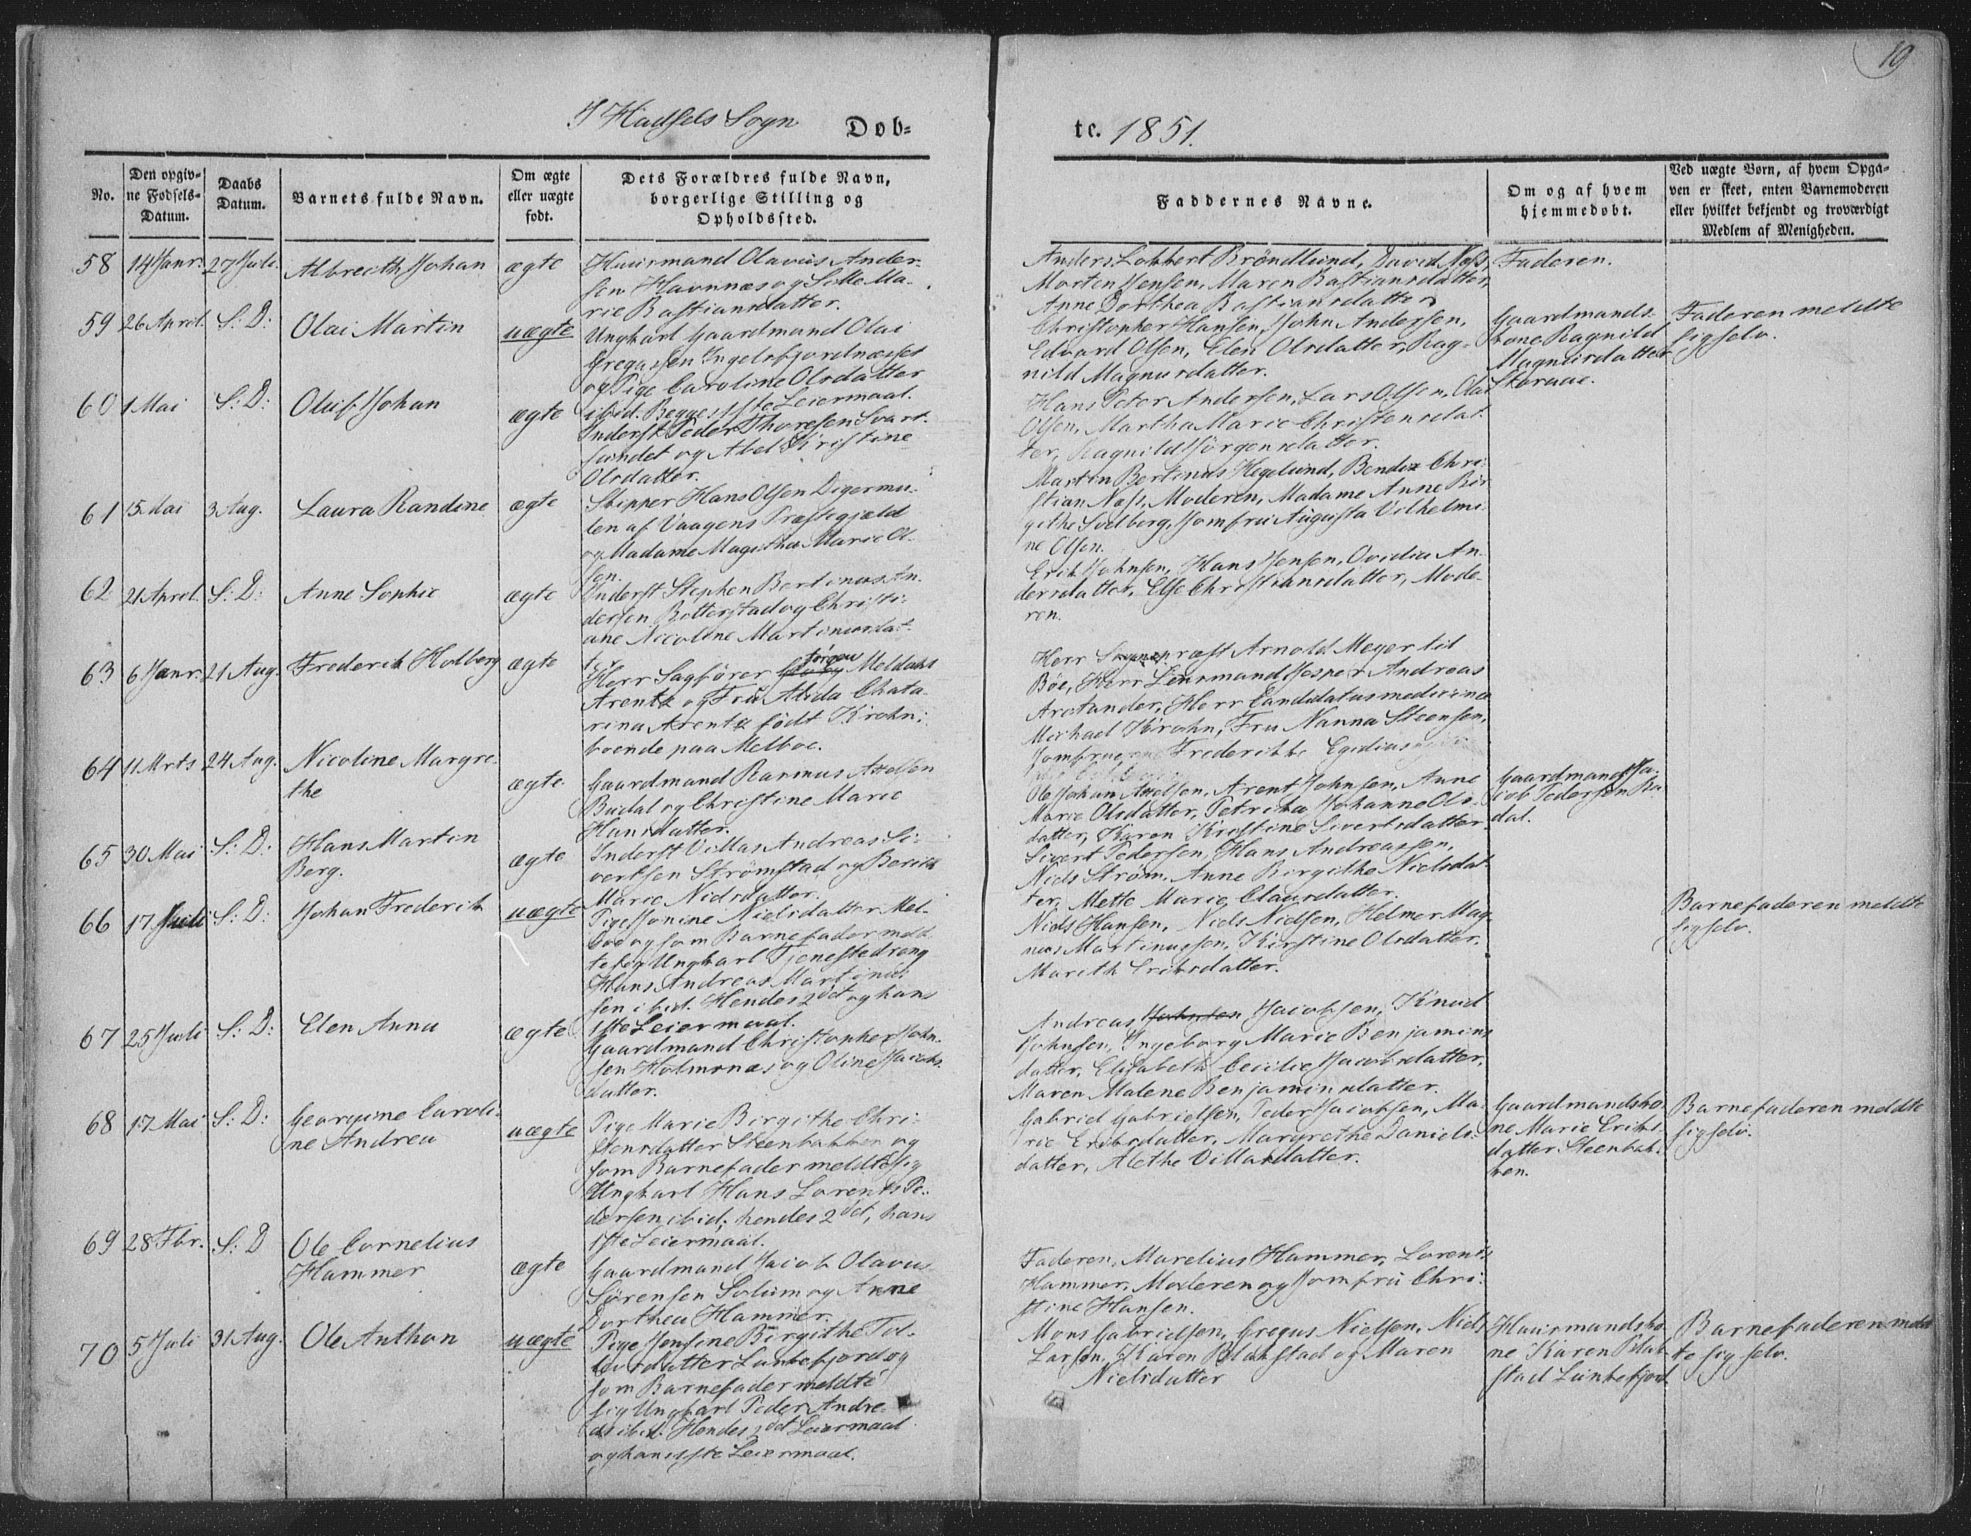 19
I Hadsels Sogn Dob-
te. 1851.
No.
Den opgiv-
ne Fødsels-
Datum.
Daabs
Datum.
Barnets fulde Navn.
Om ægte
eller uægte
født.
Dets Forældres fulde Navn,
borgerlige Stilling og
Opholdssted.
Faddernes Navne.
Om og af hvem
hjemmedøbt.
Ved uægte Børn, af hvem Opga-
ven er skeet, enten Barnemoderen
eller hvilket bekjendt og troværdigt
Medlem af Menigheden.
58 14 Janr. 27 Juli. Albrecth Johan ægte
Huusmand Olavus Ander-
sen Havnnæs og Sille Ma-
rie Bastiansdatter.
Anders Lokkert Brøndlund, David Næss,
Morten Jensen, Maren Bastiansdatter,
Anne Dorthea Bastiansdatter
Faderen.
59 26 April. S: D: Olai Martin uægte
Ungkarl Gaardmand Olai
Gregussen Ingelsfjordnæsset
og Pige Caroline Olsdatter
ibid. Begges 1ste Leiermaal.
Christopher Hansen, John Andersen,
Edvard Olsen, Elen Olsdatter, Rag-
nild Magnusdatter.
Gaardmands-
kone Ragnild
Magnusdatter
Faderen meldte
sig selv.
60 1 Mai S: D: Oluf Johan ægte
Inderst Peder Thoresen Svart-
sundet og Abel Kristine
Olsdatter.
Hans Peter Andersen, Lars Olsen, Olai
Olsen, Martha Marie Christensdat-
ter, Ragnild Jørgensdatter.
61 15 Mai 3 Aug. Laura Randine ægte
Skipper Hans Olsen Digermu-
len af Vaagens Præstegjæld
og Madame Magitha Marie Ol-
sen.
Martin Bertinus Hegelund, Bendix Chri-
stian Næss, Moderen, Madame Anne Bir-
githe Sselberg, Jomfru Augusta Vilhelmi-
ne Olsen.
62 21 April. S: D: Anne Sophie ægte
Inderst Stephen Bertinus An-
dersen Botterstad og Christi-
ane Nicoline Martinusdat-
Erik Johnsen, Hans Jensen, Ovidia An-
dersdatter, Else Christiansdatter, Mode-
ren.
63 6 Janr. 21 Aug. Frederik Holberg ægte
Herr Sagfører Jørgen Meldahl
Arentz og Fru Alida Chata-
rina Arentz født Krohn;
boende paa Melboe.
Herr Sognepræst Arnold Meyer til
Bøe, Herr Lensmand Jesper Andreas
Arctander, Herr Candidatus medicinæ
Michael Krohn, Fru Nanna Steensen,
Jomfrue Frederikke Egidius
64 11 Mrts 24 Aug. Nicoline Margre-
the ægte
Gaardmand Rasmus Axelsen
Budal og Christine Marie
Hansdatter.
Ole Johan Axelsen, Arent Johnsen, Anne
Marie Olsdatter, Petrika Johanne Ols-
datter, Karen Kristine Sivertsdatter
Gaardmand Ja-
cob Pedersen Bu-
dal.
65 30 Mai S: D: Hans Martin
Berg. ægte
Inderst Villas Andreas Si-
vertsen Strømstad og Berith
Marie Nielsdatter.
Sivert Pedersen, Hans Andreassen,
Niels Strøm, Anne Birgithe Nielsdat-
ter, Mette Marie Clausdatter.
66 17 Juli S: D: Johan Frederik uægte
Pige Jonine Nielsdatter Mel-
boe og som Barnefader meld-
te sig Ungkarl Tjenestedreng
Hans Andreas Martinus-
sen ibid. Hendes 2det og hans
1ste Leiermaal.
Niels Hansen, Niels Nielsen, Helmer Mag-
nus Martinussen, Kirstine Olsdatter,
Marith Eriksdatter.
Barnefaderen meldte
sig selv.
67 25 Juli S: D: Elen Anna ægte
Gaardmand Christopher John-
sen Holmsnæs og Oline Jacobs-
datter.
Andreas Johnsen Jacobsen, Knud
Johnsen, Ingeborg Marie Benjamins
datter, Elisabeth Cecilie Jacobsdatter,
Maren Malene Benjaminsdatter.
68 17 Mai S: D: Georgine Caroli-
ne Andrea uægte
Pige Marie Birgithe Chri-
stensdatter Steenbakken og
som Barnefader meldte sig
Ungkarl Hans Lorents Pe-
dersen ibid; hendes 2det, hans
1ste Leiermaal.
Gabriel Gabrielsen, Peder Jacobsen, Ma-
rie Eriksdatter, Margrethe Daniels-
datter, Alethe Villasdatter.
Gaardmandsko-
ne Marie Eriks-
datter Steenbak-
ken.
Barnefaderen meldte
sig selv.
69 28 Fbr. S: D Ole Cornelius
Hammer ægte
Gaardmand Jacob Olavus
Sørensen Solum og Anne
Dorthea Hammer.
Faderen, Marelius Hammer, Lorents
Hammer, Moderen og Jomfru Chri-
stine Hansen.
70 5 Juli 31 Aug. Ole Anthon uægte
Pige Jonsine Birgithe Tol-
levsdatter Lunkefjord og
som Barnefader meldte
sig Ungkarl Peder Andre-
as ibid. Hendes 2det Leiermaal
og hans 1ste Leiermaal.
Mons Gabrielsen, Gregus Nielsen, Niels
Larsen, Karen Blokstad og Maren
Nielsdatter
Huusmandsko-
ne Karen Blok-
stad Lunkefjord.
Barnefaderen meld-
te sig selv.